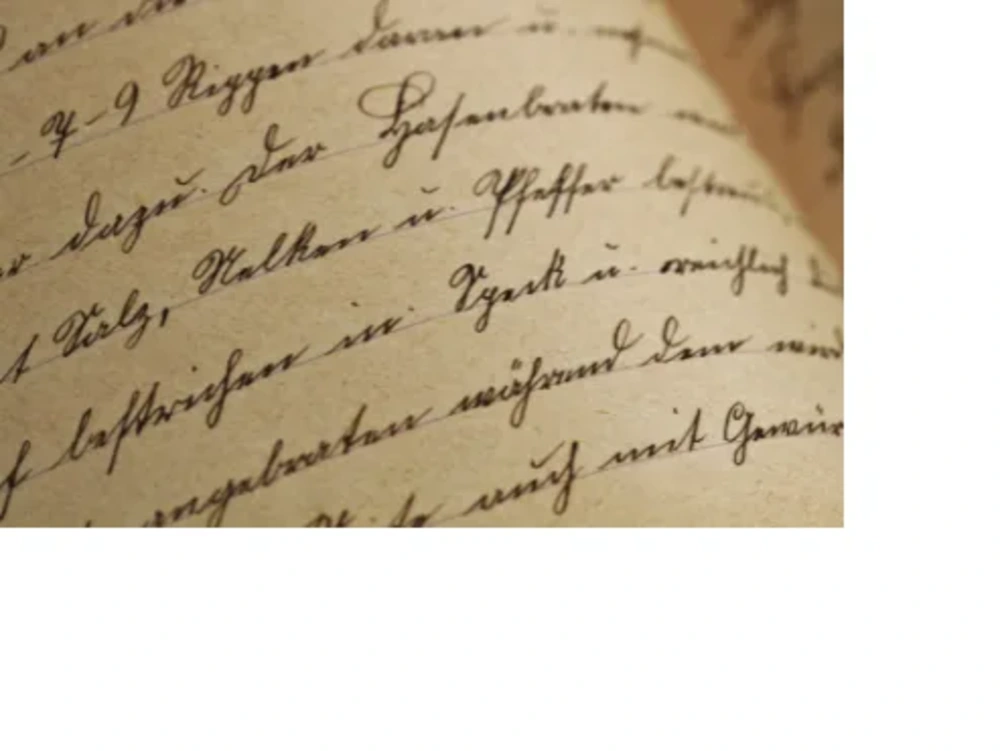 an die
- 7-9 Rippen daran u.
dazu. Der Hasenbraten
Salz, Nelken u. Pfeffer bestreut
bestrichen in Speck u. reichlich
angebraten während dem wird
auch mit Gewür